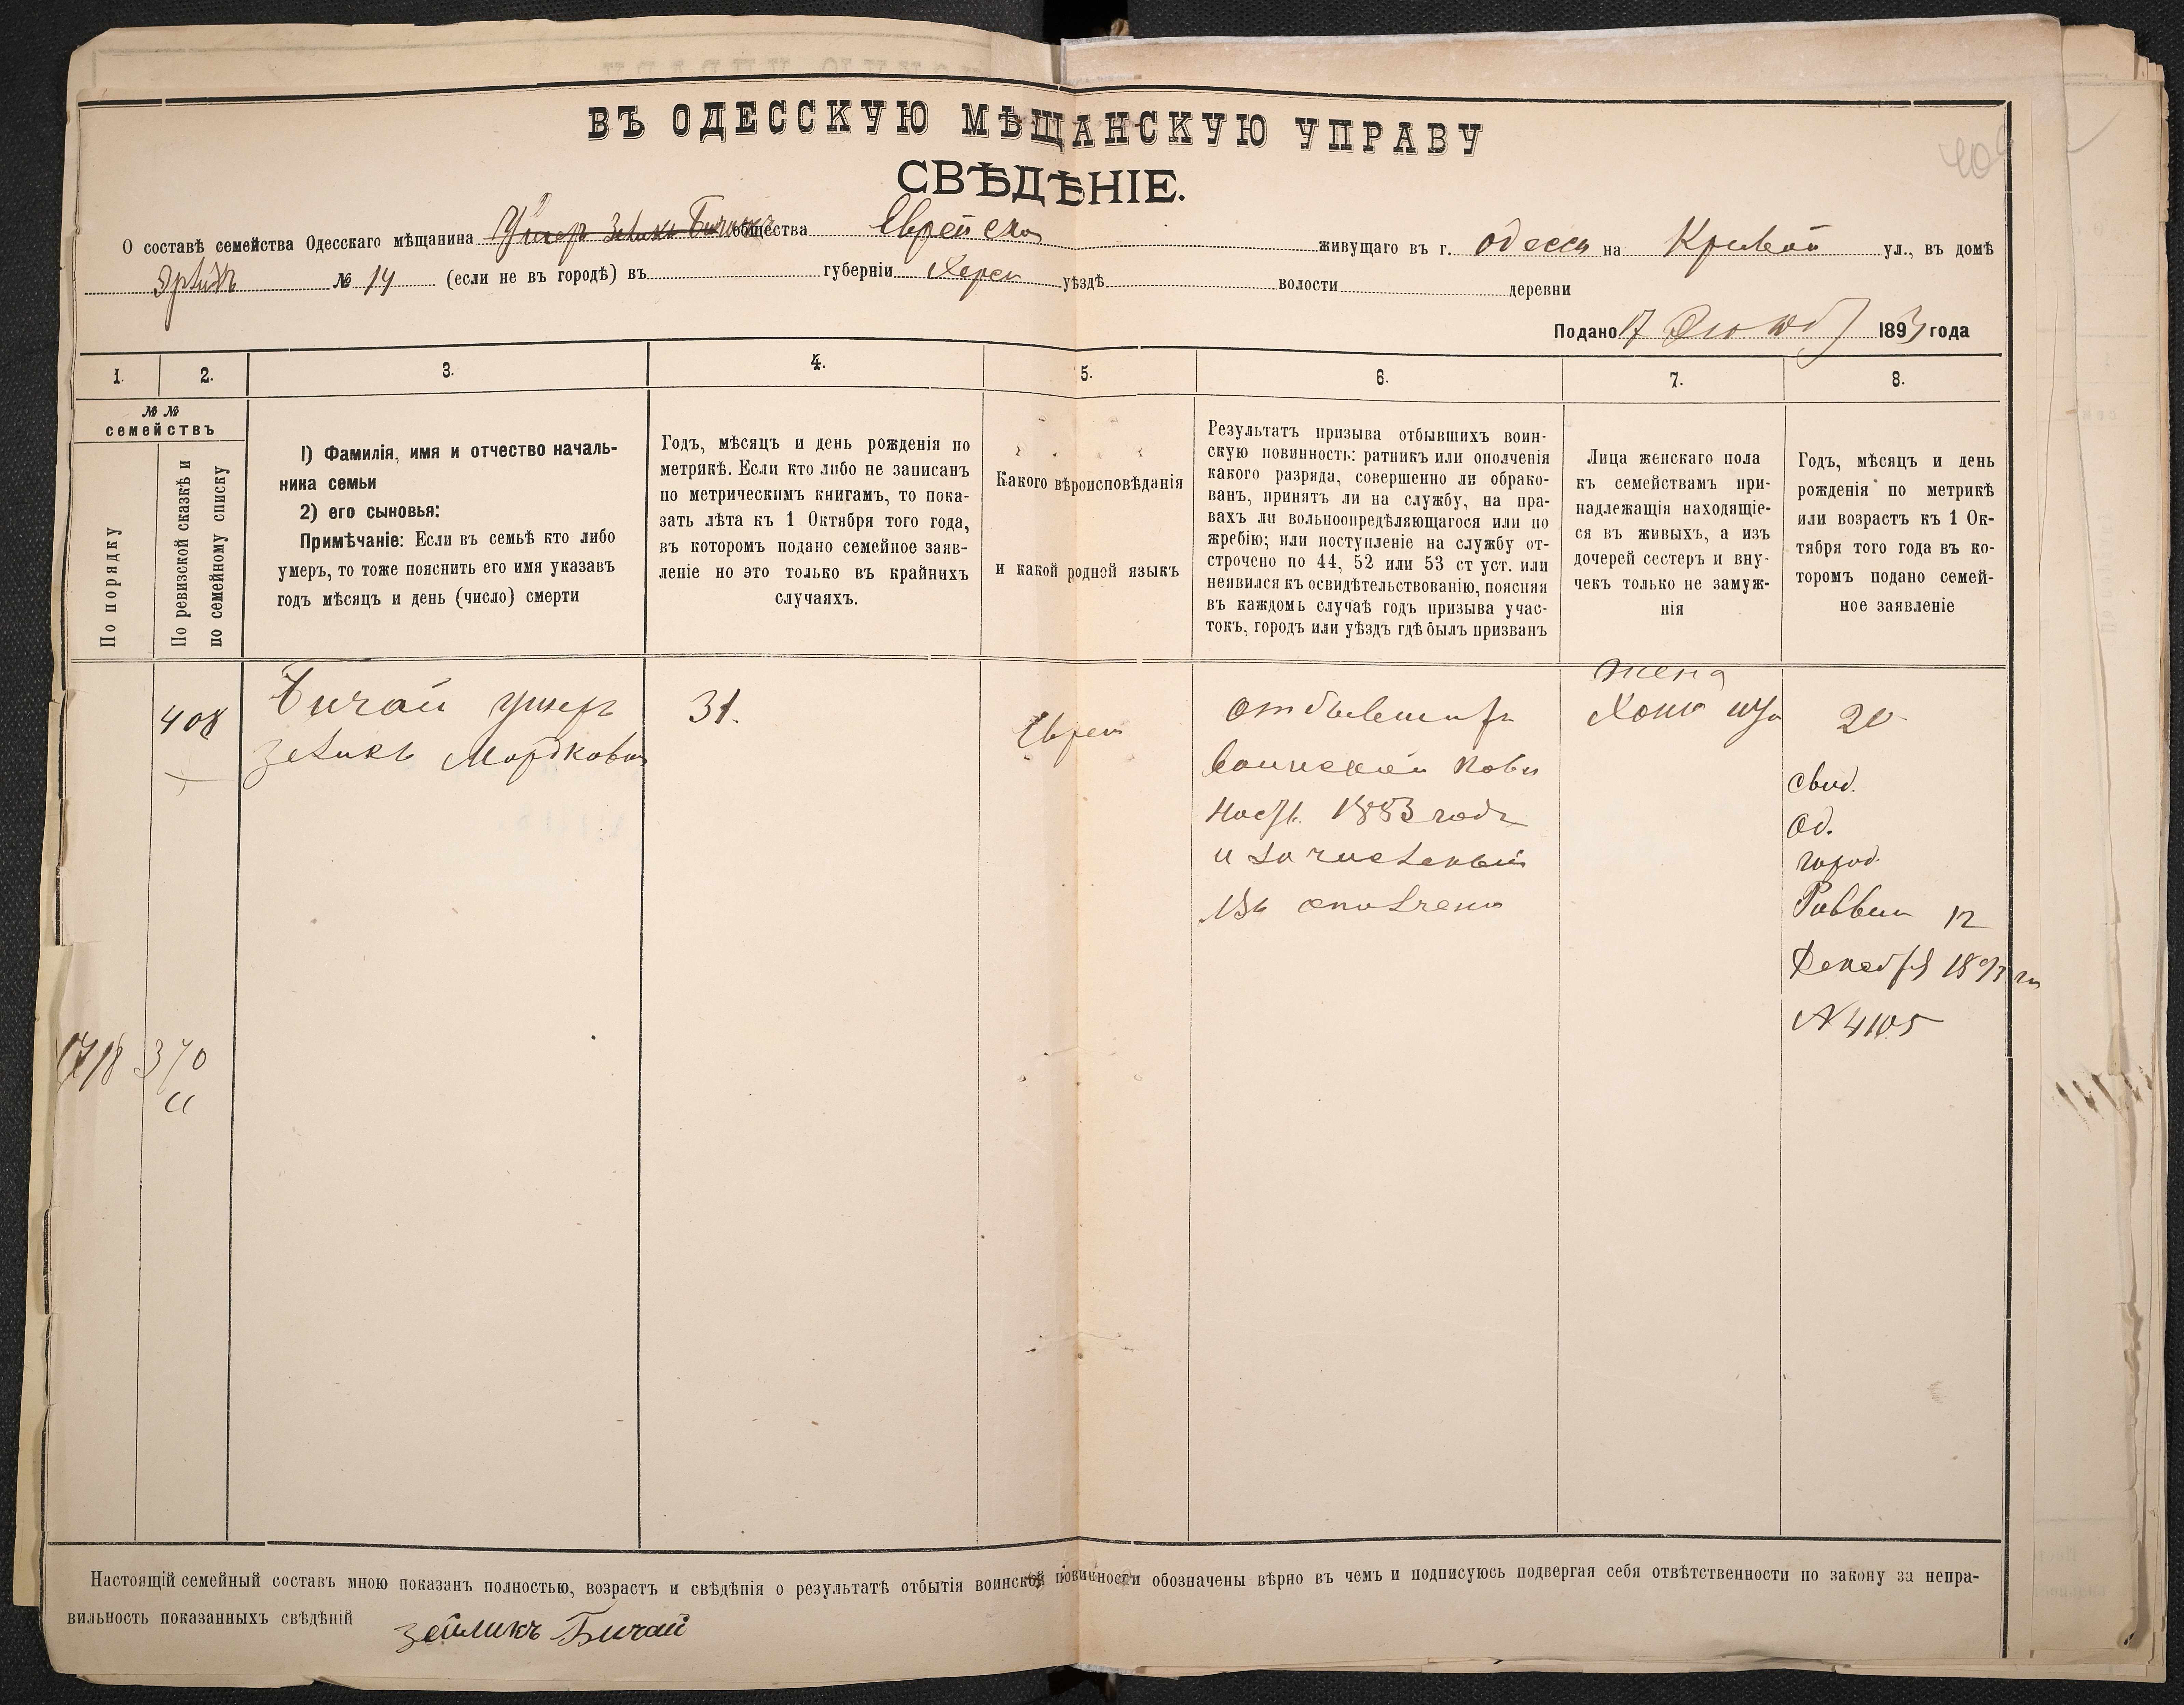 ВЪ ОДЕССКУЮ МѢЩАНСКУЮ УПРАВУ
СВѢДѢНІЕ.
О составѣ семейства Одесскаго мѣщанина Ушеръ Зеликъ Бичай общества Еврейско живущаго въ г. Одессѣ на Кривой ул., въ домѣ
№ 14 (если не въ городѣ) въ губерніи Херсо уѣздѣ волости деревни
Подано 17 1893 года
1. 2. 3. 4. 5. 6. 7. 8.
№ №
семействъ
По порядку
По ревизской сказкѣ и
по семейному списку
1) Фамилія, имя и отчество началь-
ника семьи
2) его сыновья:
Примѣчаніе: Если въ семьѣ кто либо
умеръ, то тоже пояснить его имя указавъ
годъ мѣсяцъ и день (число) смерти
Годъ, мѣсяцъ и день рожденія по
метрикѣ. Если кто либо не записанъ
по метрическимъ книгамъ, то пока-
зать лѣта къ 1 Октября того года,
въ которомъ подано семейное заяв-
леніе но это только въ крайнихъ
случаяхъ.
Какого вѣроисповѣданія
и какой родной языкъ
Результатъ призыва отбывшихъ воин-
скую повинность: ратникъ или ополченія
какого разряда, совершенно ли обрако-
ванъ, принятъ ли на службу, на пра-
вахъ ли вольноопредѣляющагося или по
жребію; или поступленіе на службу от-
строчено по 44, 52 или 53 ст уст. или
неявился къ освидѣтельствованію, поясняя
въ каждомъ случаѣ годъ призыва учас-
токъ, городъ или уѣздъ гдѣ былъ призванъ
Лица женскаго пола
къ семействамъ при-
надлежащія находящіе-
ся въ живыхъ, а изъ
дочерей сестеръ и вну-
чекъ только не замуж-
нія
Годъ, мѣсяцъ и день
рожденія по метрикѣ
или возрастъ къ 1 Ок-
тября того года въ ко-
торомъ подано семей-
ное заявленіе
408
Бичай Ушеръ
Зеликъ Мордкови
31.
Еврей
отбывши
воинской пови
ност. 1883 годъ
и зачисленый
въ ополчени
жена
Хона
20
свид.
Од.
город.
Раввин 12
Декабря 1893 г
№ 4105
1718 370
Настоящій семейный составъ мною показанъ полностью, возрастъ и свѣдѣнія о результатѣ отбытія воинской повинности обозначены вѣрно въ чемъ и подписуюсь подвергая себя отвѣтственности по закону за непра-
вильность показанныхъ свѣдѣній Зейликъ Бичай